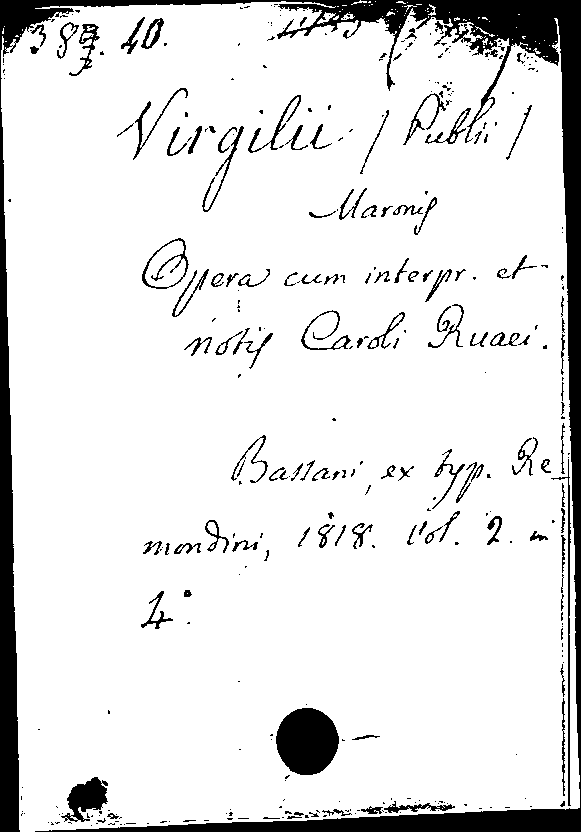 40.
Virgilii / Publii /
Maronis
Opera cum interpr. et
notis Caroli Ruaei.
Bassani, ex typ. Re-
mondini, 1818. Vol. 2. in
4°.